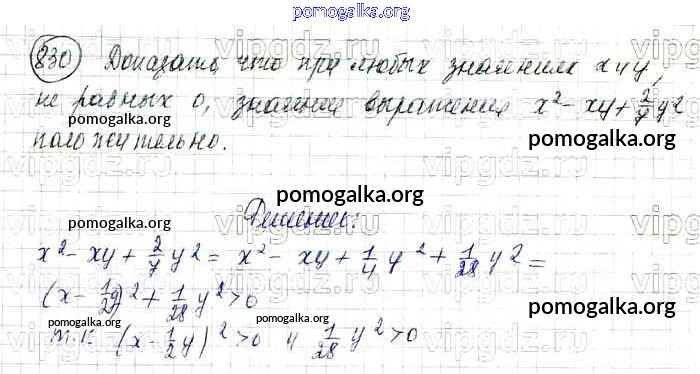 pomogalka.org
830 Доказать, что при любых значениях x и y,
не равных 0, значение выражения x² - xy + 2/7 y²
положительно.
pomogalka.org
pomogalka.org
Решение:
x² - xy + 2/7 y² = x² - xy + 1/4 y² + 1/28 y² =
(x - 1/2 y)² + 1/28 y² > 0
pomogalka.org
pomogalka.org
pomogalka.org
т.к. (x - 1/2 y)² > 0 и 1/28 y² > 0
pomogalka.org